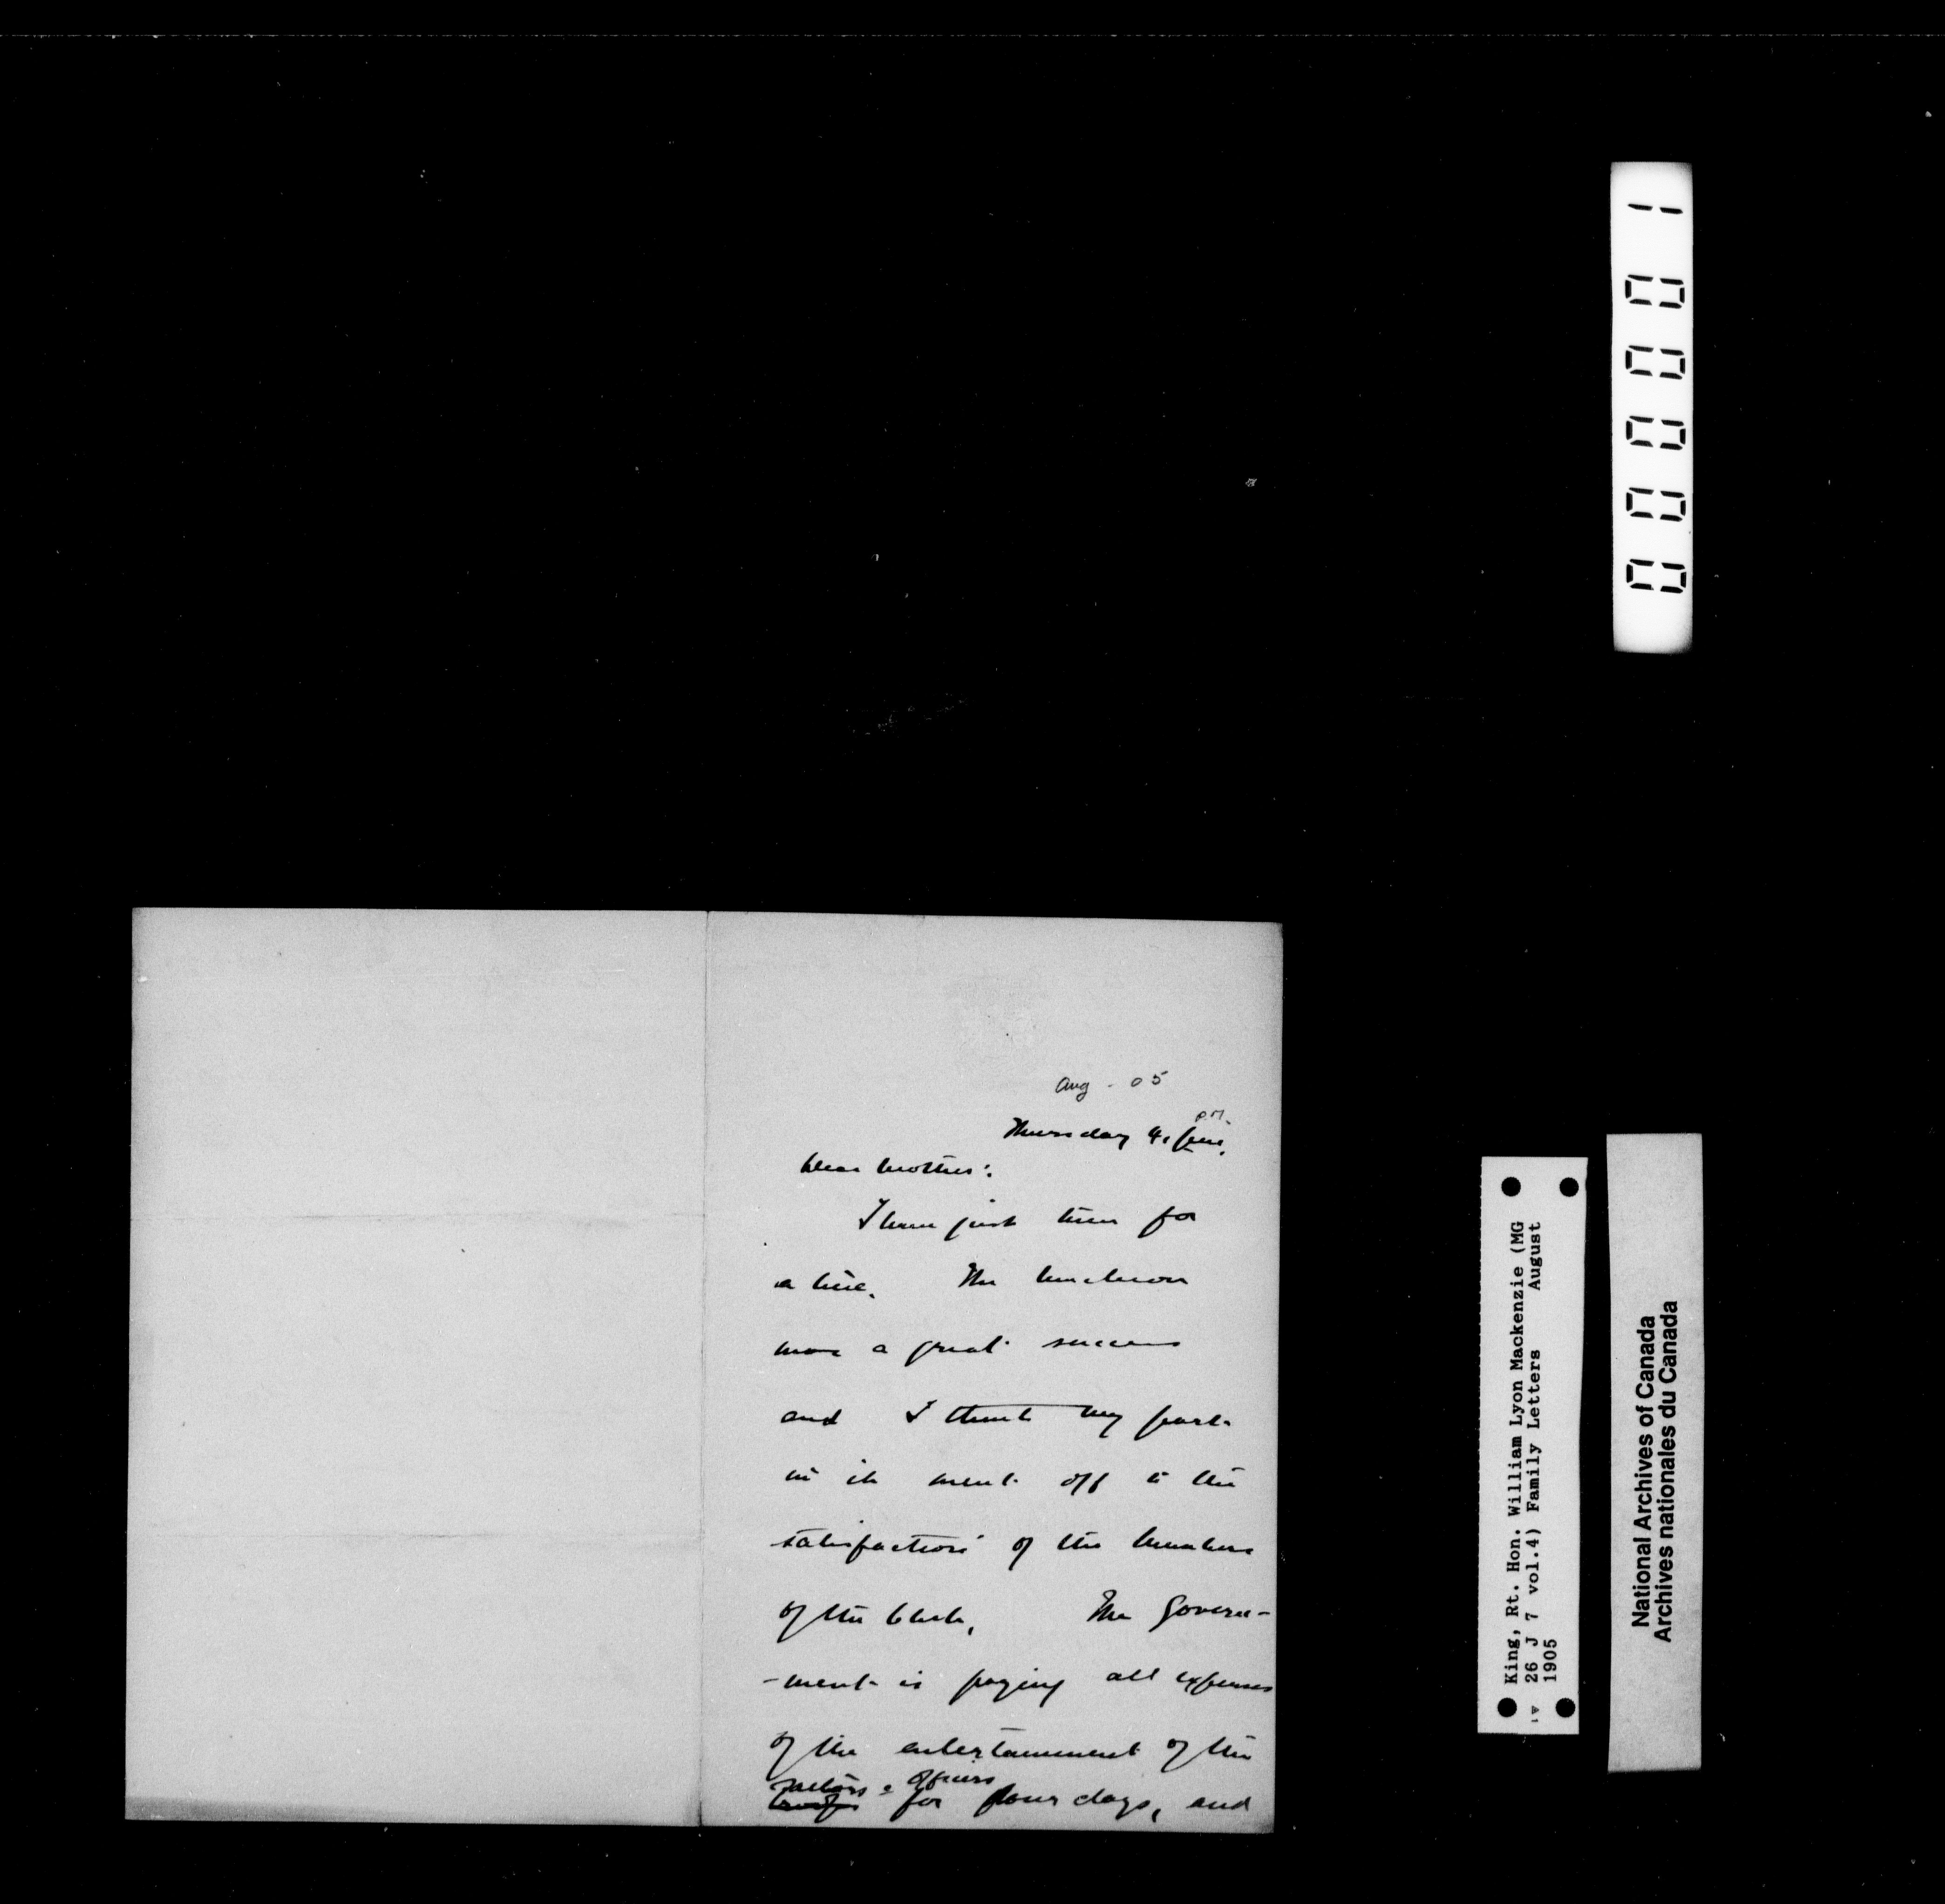 000001
Aug - 05
P.M.
Thursday 4,
Dear Mother:
I have just time for
a line. The luncheon
was a great success
and I think my part
in it went off to the
satisfaction of the members
of the Club. The Govern-
-ment is paying all expenses
of the entertainment of the
sailors & officers
troops for four days, and
King, Rt. Hon. William Lyon Mackenzie (MG
26 J 7 vol.4) Family Letters August
1905
National Archives of Canada
Archives nationales du Canada